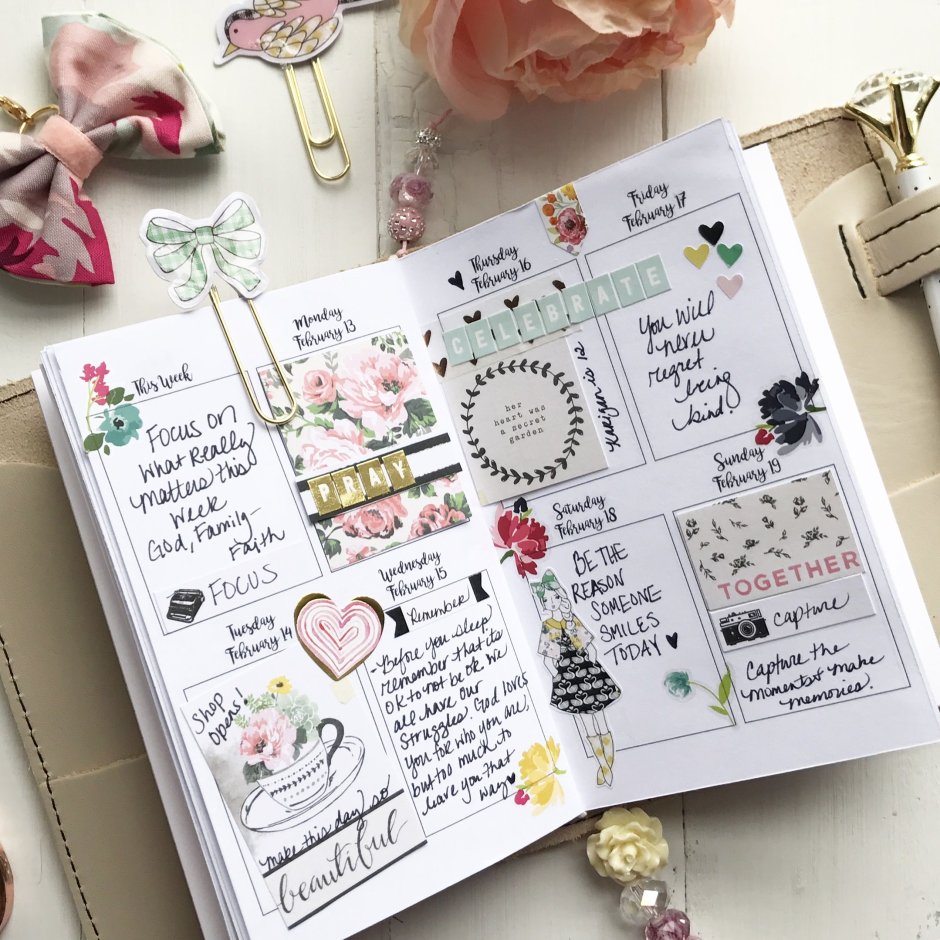 This Week
Focus on
What Really
matters this
Week
God, Family-
Faith
FOCUS
Monday
February 13
PRAY
Tuesday
February 14
Shop
opens!
make this day so
beautiful
Wednesday
February 15
Remember
-Before you sleep
remember that its
ok to not be ok. We
all have our
Struggles. God loves
you for who you are,
but too much to
leave you that
way
Thursday
February 16
CELEBRATE
her
heart was
a secret
garden
is 12
Friday
February 17
You will
never
regret
being
kind!
Saturday
February 18
BE THE
REASON
SOMEONE
SMILES
TODAY
Sunday
February 19
TOGETHER
capture
Capture the
moments & make
memories.